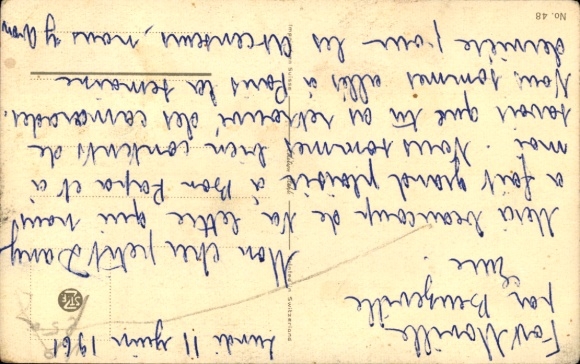 Fort Moville
par Beuzeville
Eure.
Lundi 11 Juin 1961
Mon cher petit Dany
Merci beaucoup de ta lettre qui nous
a fait grand plaisir à Bon Papa et à
moi. Nous sommes bien contents de
savoir que tu as retrouvé des camarades.
Nous sommes allés à Paris la semaine
dernière pour les Ascenseurs, nous y avons
No. 48